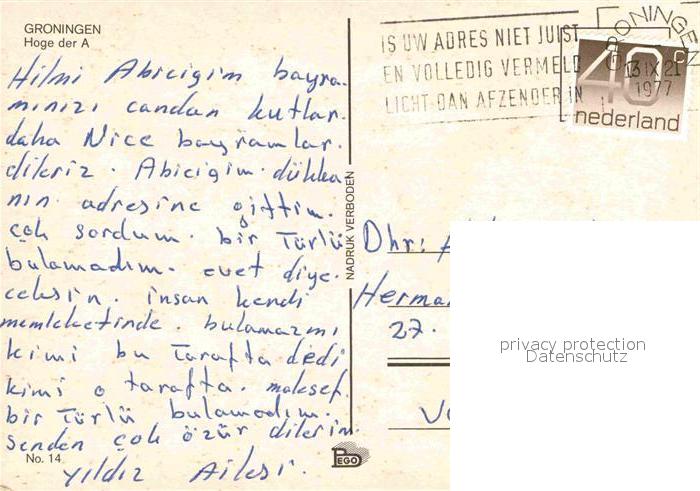 GRONINGEN
Hoge der A
Hilmi Abiciğim bayra-
mınızı candan kutlar.
daha Nice bayramlar.
dileriz. Abiciğim. dükka-
nın. adresine gittim.
çok sordum. bir Türlü
bulamadım. evet diye-
ceksin. insan kendi
memleketinde. bulamazmı
kimi bu Tarafta dedi
kimi o tarafta. malesef.
bir Türlü bulamadım.
senden çok özür dilerim.
Yıldız Ailesi.
No. 14
NADRUK VERBODEN
PEGO
IS UW ADRES NIET JUIST
EN VOLLEDIG VERMELD
LICHT DAN AFZENDER IN
GRONINGEN
13 IX 21
1977
40c
nederland
Dhr:
Herma
27.
privacy protection
Datenschutz